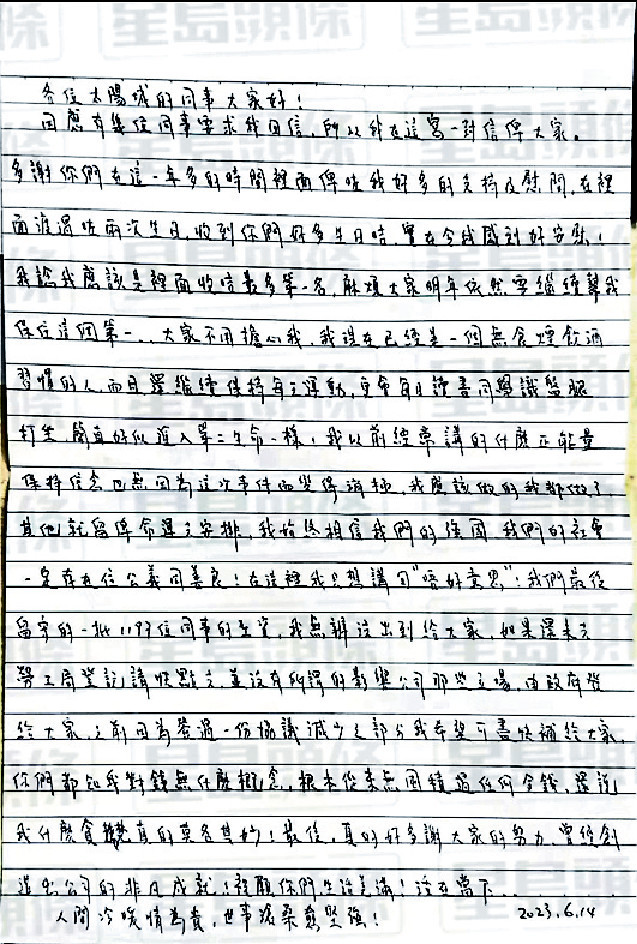 星島頭條
各位太陽城的同事大家好！
因應有幾位同事要求我回信，所以我在這寫一封信俾大家。
多謝你們在這一年多的時間裡面俾咗我好多的支持及慰問，在裡
面渡過咗兩次生日，收到你們好多生日咭，實在令我感到好安慰！
我諗我應該是裡面收信最多第一名，麻煩大家明年依然要繼續幫我
保住這個第一。大家不用擔心我，我現在已經是一個無食煙飲酒
習慣的人，而且還繼續保持每天運動，亦會每日讀書同學識盤腿
打坐，簡直好似進入第二生命一樣，我以前經常講的什麼正能量
保持信念也無因為這次事件而變得消極，我應該做的我都做了
其他就留俾命運去安排，我始終相信我們的強國，我們的社會
一定存在住公義同善良！在這裡我只想講句"唔好意思"！我們最後
留守的一批1193位同事的工資，我無辦法出到給大家，如果還未去
勞工局登記請快點去，並沒有所謂的娛樂公司那些立場，由政府發
給大家，之前因為簽過一份協議減少之部分我希望可盡快補給大家，
你們都知我對錢無什麼概念，根本從來無囤積過任何金錢，還說
我什麼貪婪真的莫名其妙！最後，真的好多謝大家的努力，曾經創
造出公司的非凡成就！祝願你們生活美滿！活在當下...
人間冷暖情為貴，世事滄桑愈堅強！ 2023.6.14